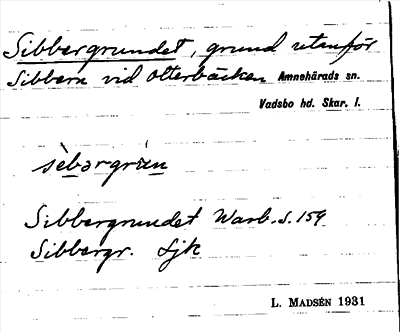 Sibbergrundet, grund utanför
Sibbern vid Otterbäcken Amnehärads sn.
Vadsbo hd. Skar. l.
sèbərgrùn
Sibbergrundet Warb. s. 159
Sibbergr. Sjk
L. MADSÉN 1931